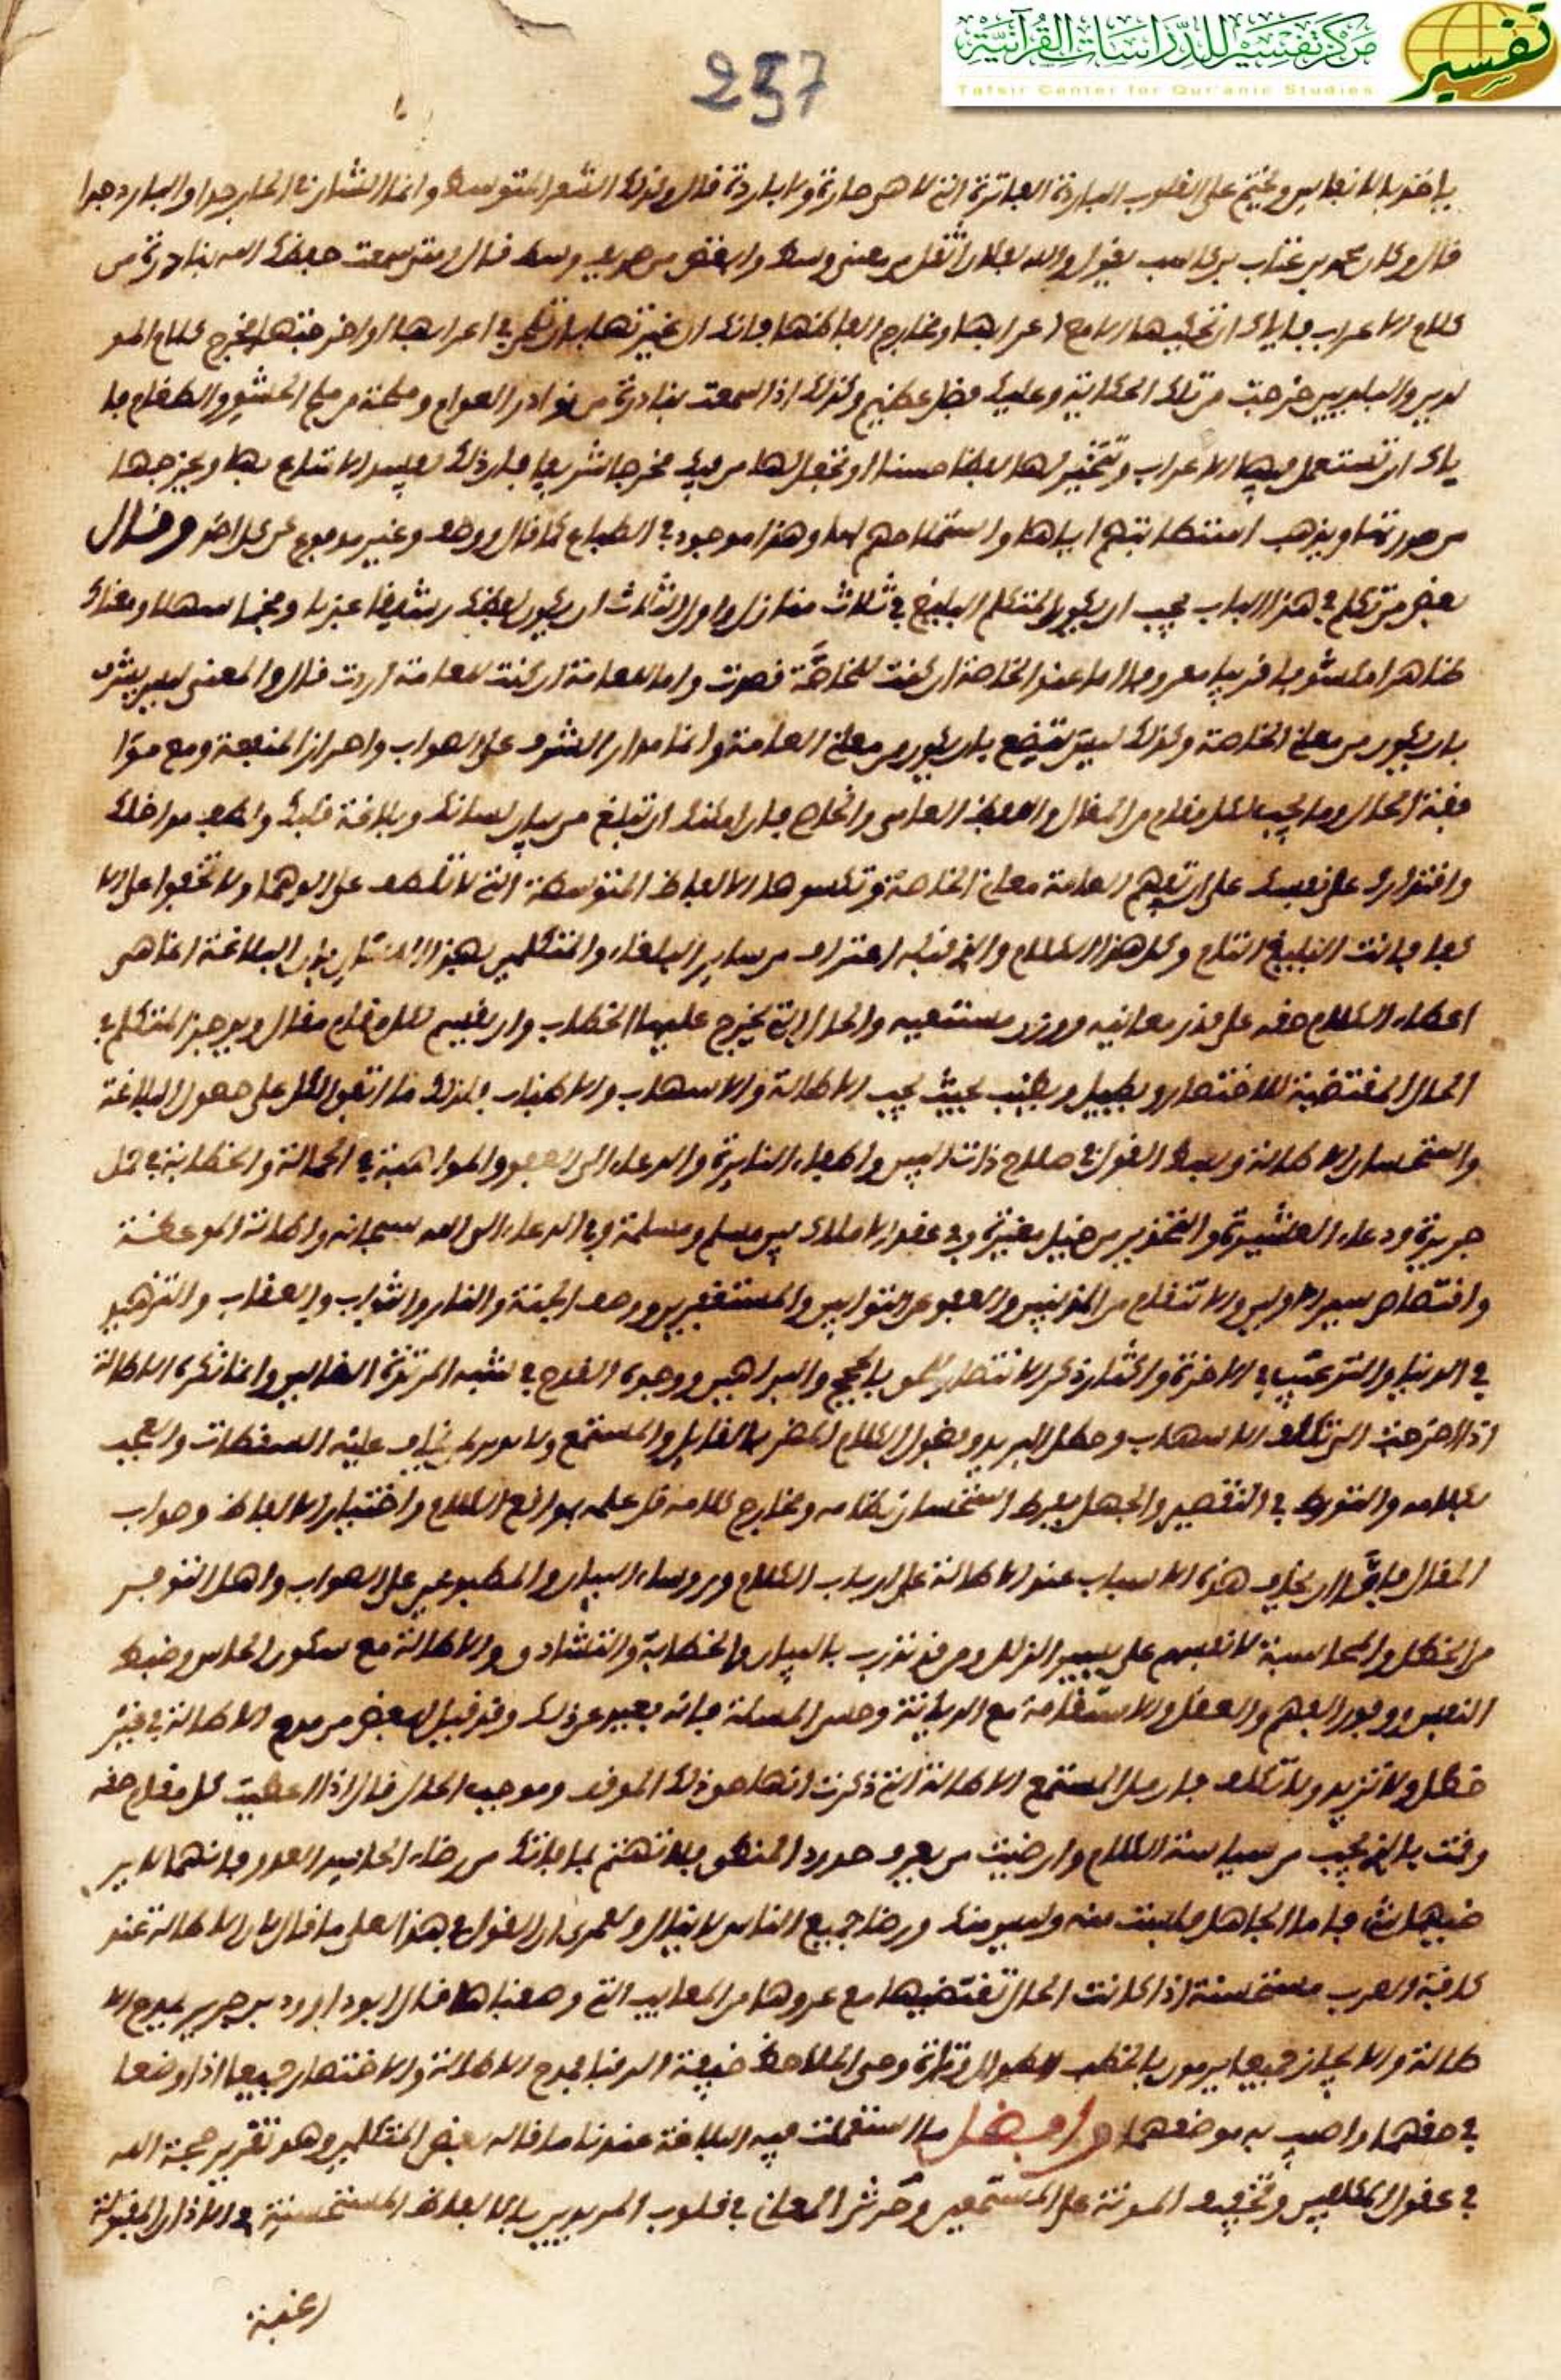 مركز تفسير للدراسات القرآنية
تفسير
Tafsir Center for Qur'anic Studies
257
ياخذ بالانفاس ويختم على القلوب الباردة الفاترة التي لا هي حارة ولا باردة قال وكذلك الشعر المتوسط وانما الشان في الحار جدا والبارد جدا
قال وكان محمد بن عباد بن كاسب يقول والله لفلان اثقل من مغني وسط وابغض من ظريف وسط قال ومتى سمعت حفظك الله بنادرة من
كلام الاعراب فاياك ان تحكيها الا مع اعرابها ومخارج الفاظها فانك ان غيرتها بان تلحن في اعرابها او اخرجتها مخرج كلام المو
لدين والبلديين خرجت من تلك الحكاية وعليك فضل عظيم وكذلك اذا سمعت بنادرة من نوادر العوام وملحة من ملح الحشو والطغام فا
ياك ان تستعمل فيها الاعراب وتتخير لها لفظا حسنا او تجعل لها من فيك مخرجا شريفا فان ذلك يفسد الامتاع بها ويخرجها
من صورتها ويذهب استطابتهم اياها واستملاحهم لها وهذا موجود في الطباع كما قال ووصف وغير مدفوع عن كل احد وقال
بعض من تكلم في هذا الباب يجب ان يكون المتكلم البليغ في ثلاث منازل واول الثلاث ان يكون لفظك رشيقا عذبا وفخما سهلا ومعناك
ظاهرا مكشوفا قريبا معروفا اما عند الخاصة ان كنت للخاصة قصدت واما للعامة ان كنت للعامة اردت قال والمعنى ليس يشرف
بان يكون من معاني الخاصة وكذلك ليس يتضع بان يكون من معاني العامة وانما مدار الشرف على الصواب واحراز المنفعة ومع موا
فقة الحال وما يجب لكل مقام من المقال واللفظ العامي والخاص فان امكنك ان تبلغ من بيان لسانك وبلاغة قلمك ولطف مداخلك
واقتدارك على نفسك على ان تفهم العامة معاني الخاصة وتكسوها الالفاظ المتوسطة التي لا تلطف على الدهما ولا تجفوا على الا
كفا فانت البليغ التام وكل هذا الكلام والذي قبله اعتراف من ساير البلغاء والمتكلمين بهذا اللسان بان البلاغة انما هي
اعطاء الكلام حقه على قدر معانيه ووزن مستمعيه والحال التي يخرج عليها الخطاب وان يقسم لكل مقام مقال ويوجز المتكلم في
الحال المقتضية للاختصار ويطيل ويطنب بحيث يجب الاطالة والاسهاب والاطناب ولذلك ما اتفق الكل على حصول البلاغة
واستحسان الاطالة وبسط القول في صلاح ذات البين واطفاء النايرة والدعاء الى العفو والمواهبة في الحمالة والخطابة في حمل
جريرة ودعاء العشيرة والتحذير من خيل مغيرة وفي عقد الاملاك بين مسلم ومسلمة وفي الدعاء الى الله سبحانه واطالة الموعظة
واقتصاص سير الاولين والانتقام من المذنبين والعفو عن التوابين والمستغفرين ووصف الجنة والنار والثواب والعقاب والتزهيد
في الدنيا والترغيب في الاخرة واكثار ذكر الانتصار للحق بالحجج والبراهين ووجوه القدح في شبه المرتزقة الضالين وانما تكره الاطالة
اذا خرجت الى تكلف الاسهاب وخطل التزيد وفضول الكلام المضر بالقايل والمستمع ولا بد لمن يخاف عليه السقطات والعجب
بكلامه والتورط في التقصير والجهل بفرط استحسان نظامه ومخارج كلامه قل علمه بمواقع الكلام واختيار الالفاظ وصواب
المقال فاما ان يخاف هذه الاسباب عند الاطالة على ارباب الكلام ورؤساء البيان والمطبوعين على الصواب واهل التوفير
من الخطل والمحاسبة لانفسهم على يسير الزلل ومن قد تدرب بالبيان والخطابة والتشادق والاطالة مع سكون الجاش وضبط
النفس ووفور الفهم والعقل والاستقامة مع الديانة وحسن المسلة فانه بعيد عن ذلك وقد قيل لبعض من مدح الاطالة في غير
خطل ولا تزيد ولا تكلف فان مل المستمع الاطالة التي ذكرت انها حق ذلك الموقف وموجب الحال قال اذا اعطيت كل مقام حقه
وقمت بالذي يجب من سياسة الكلام وارضيت من يعرف حدود المنطق فلا تهتم بما فاتك من رضاء الحاسد والعدو فانهما لا ير
ضيهما شي فاما الجاهل فلست منه وليس منك ورضا جميع الناس لا ينال ولعمري ان القول في هذا لعلى ما قال فان الاطالة عند
كافة العرب مستحسنة اذا كانت الحال تقتضيها مع عروها من المعايب التي وصفناها قال ابو دؤاد بن جرير يمدح الا
طالة والايجاز جميعا يرمون بالخطب الطوال وتارة وحي الملاحظ خيفة الرقبا فمدح الاطالة والاختصار جميعا اذا وضعا
في حقهما واصيب به موضعهما وافضل ما استعملت فيه البلاغة عندنا ما قاله بعض المتكلمين وهو تقرير حجة الله
في عقول المكلفين وتخفيف المونة على المستمعين وتزيين المعاني في قلوب المريدين بالالفاظ المستحسنة في الاذان المقبولة